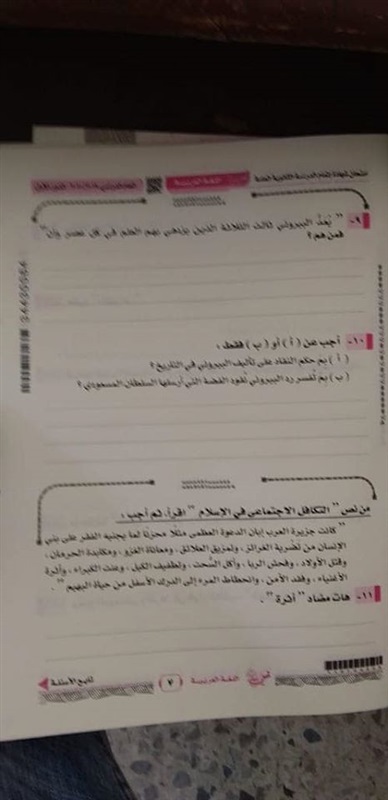 امتحان شهادة إتمام الدراسة الثانوية العامة
اللغة العربية
٩- " يُعدُّ البيروني ثالث الثلاثة الذين يزدهي بهم العلم في كل عصر وآن "
فمن هم ؟
١٠- أجب عن ( أ ) أو ( ب ) فقط :
( أ ) بم حكم النقاد على تآليف البيروني في التاريخ ؟
( ب ) بم تُفسر رد البيروني نُقود الفضة التي أرسلها السلطان المسعودي ؟
من نص " التكافل الاجتماعي في الإسلام " اقرأ، ثم أجب :
" كانت جزيرة العرب إبان الدعوة العظمى مثلًا محزنًا لما يجنيه الفقر على بني
الإنسان من تضرية الغرائز، وتمزيق العلائق، ومعاناة الغزو، ومكابدة الحرمان،
وقتل الأولاد، وفحش الربا، وأكل السُّحت، وتطفيف الكيل، وعنت الكبراء، وأثرة
الأغنياء، وفقد الأمن، وانحطاط المرء إلى الدرك الأسفل من حياة البهيم " .
١١- هات مضاد " أثرة " .
اللغة العربية
٧
تابع الأسئلة